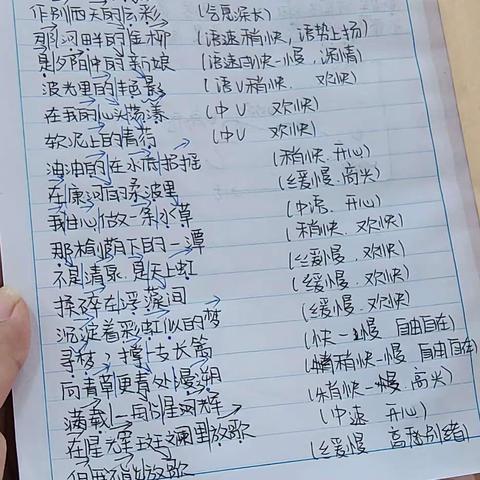 作别西天的云彩 (气息深长)
那河畔的金柳 (语速稍快,语势上扬)
是夕阳中的新娘 (语速由快-慢,深情)
波光里的艳影 (语V稍快. 欢快)
在我的心头荡漾 (中V 欢快)
软泥上的青荇 (中V 欢快)
油油的在水底招摇 (稍快.开心)
在康河的柔波里 (缓慢.)
我甘心做一条水草 (中语. 开心)
那榆荫下的一潭 (稍快.欢快)
不是清泉.是天上虹 (缓慢.欢快)
揉碎在浮藻间 (缓慢.欢快)
沉淀着彩虹似的梦 (缓慢.欢快)
寻梦?撑一支长篙 (快-慢 自由自在)
向青草更青处漫溯 (稍快-慢 自由自在)
满载一船星辉 (稍快-慢)
在星辉斑斓里放歌 (中速 开心)
但我不能放歌 (缓慢 离别)